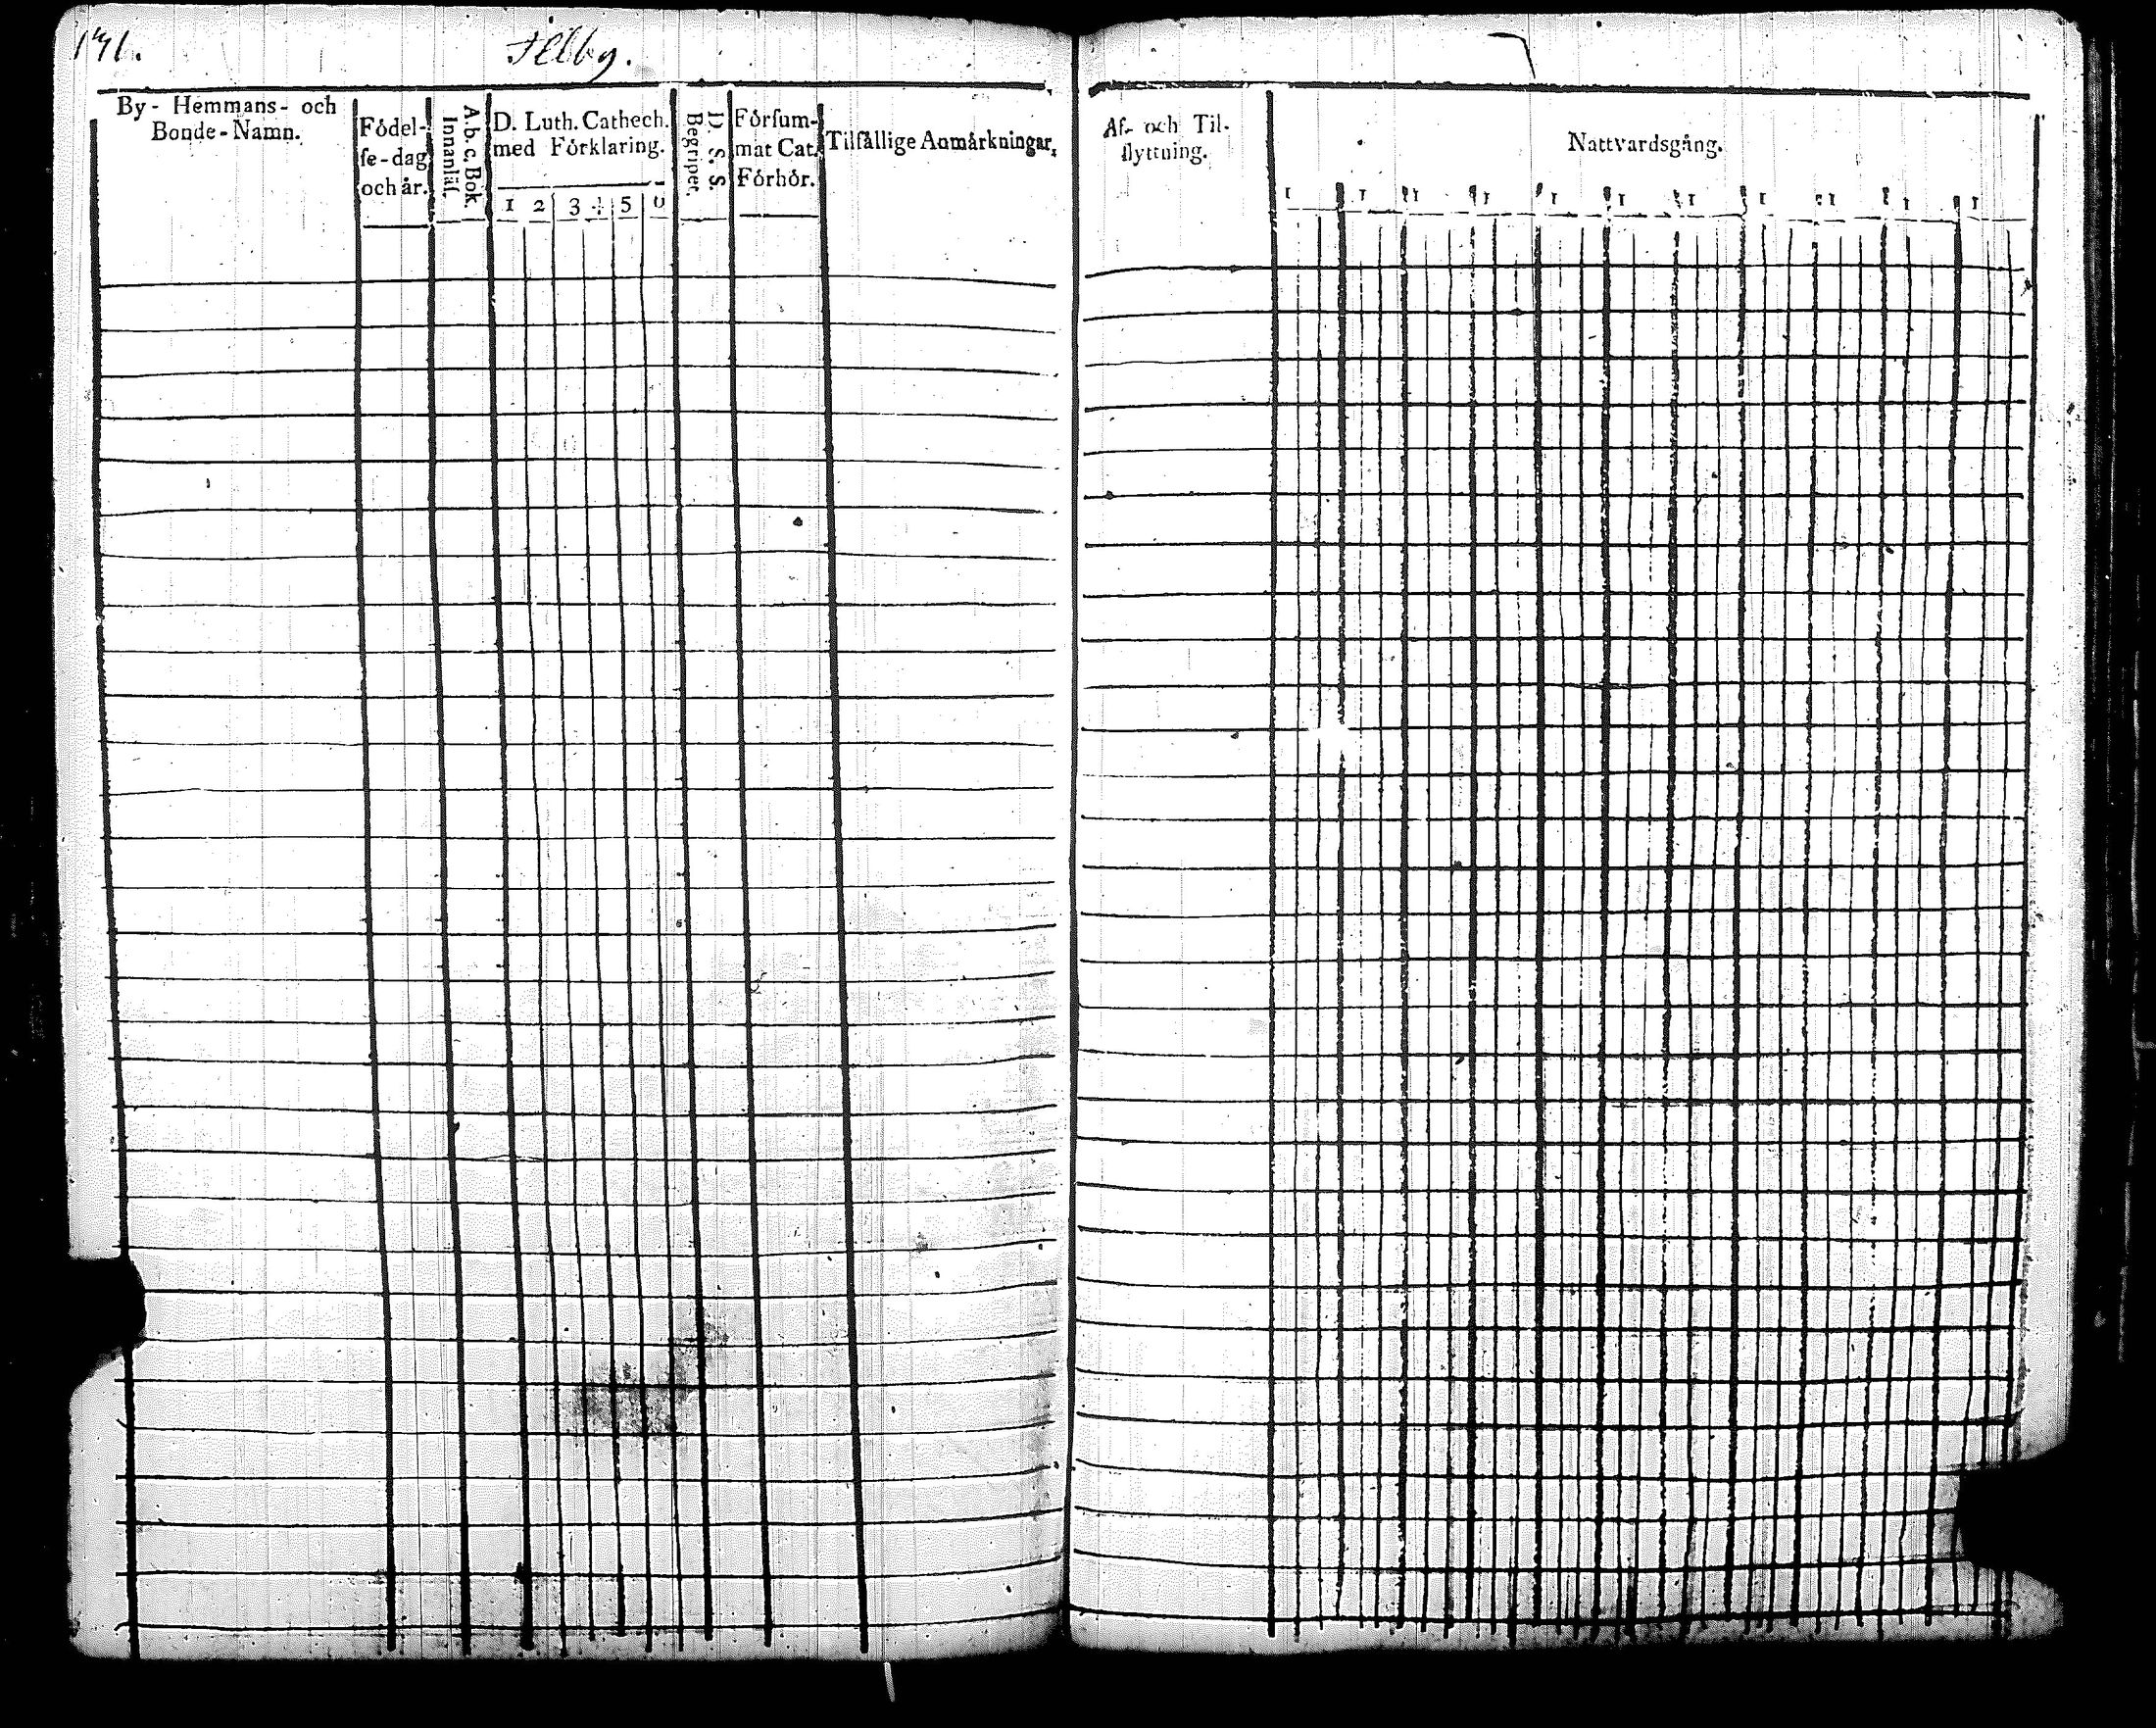 171.
By- Hemmans- och
Bonde-Namn.
Födel-
se-dag
och år.
A.b.c. Bok
Innanläs.
D. Luth. Cathech.
med Förklaring.
1 2 3 4 5 6
D. S. S.
Begriper.
Försum-
mat Cat.
Förhör.
Tilfällige Anmärkningar.
Af- och Til-
flyttning.
Nattvardsgång.
1 1 1 1 1 1 1 1 1 1 1